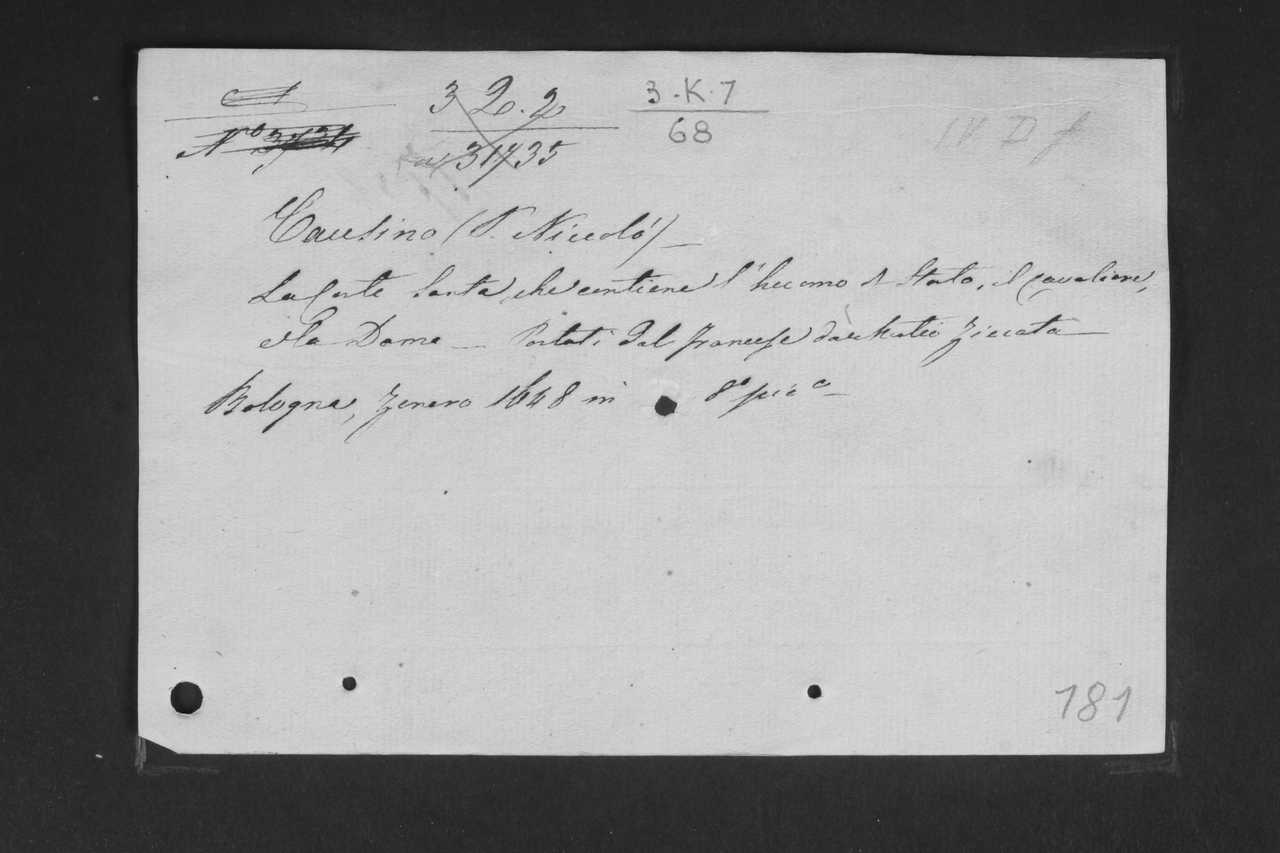 3 Q. 2
3.K.7
68
IV D f
Causino (P. Niccoló)
La Corte Santa, che contiene l'huomo di Stato, il Cavaliere,
e la Dama — Portati dal francese da Matteo Ziccata
Bologna, Zenero 1648 in 8º picº
181